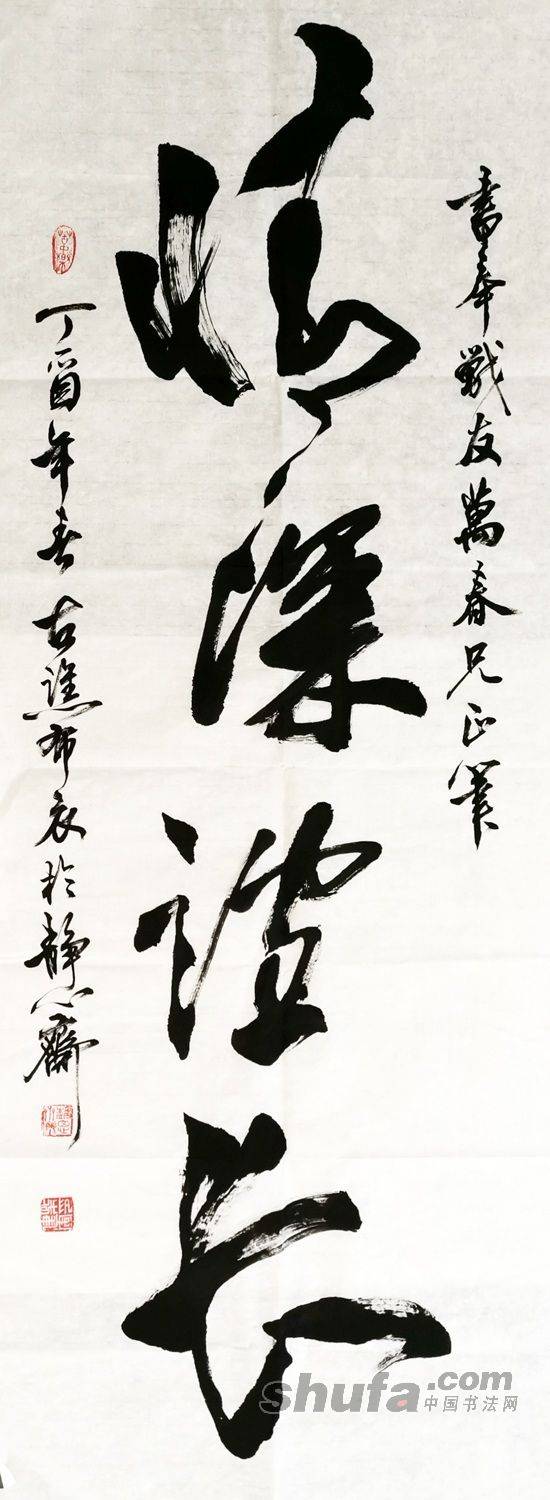 書奉戰友萬春兄正
情深誼长
丁酉年春古譙布衣於靜心齋
shufa.com
中国书法网